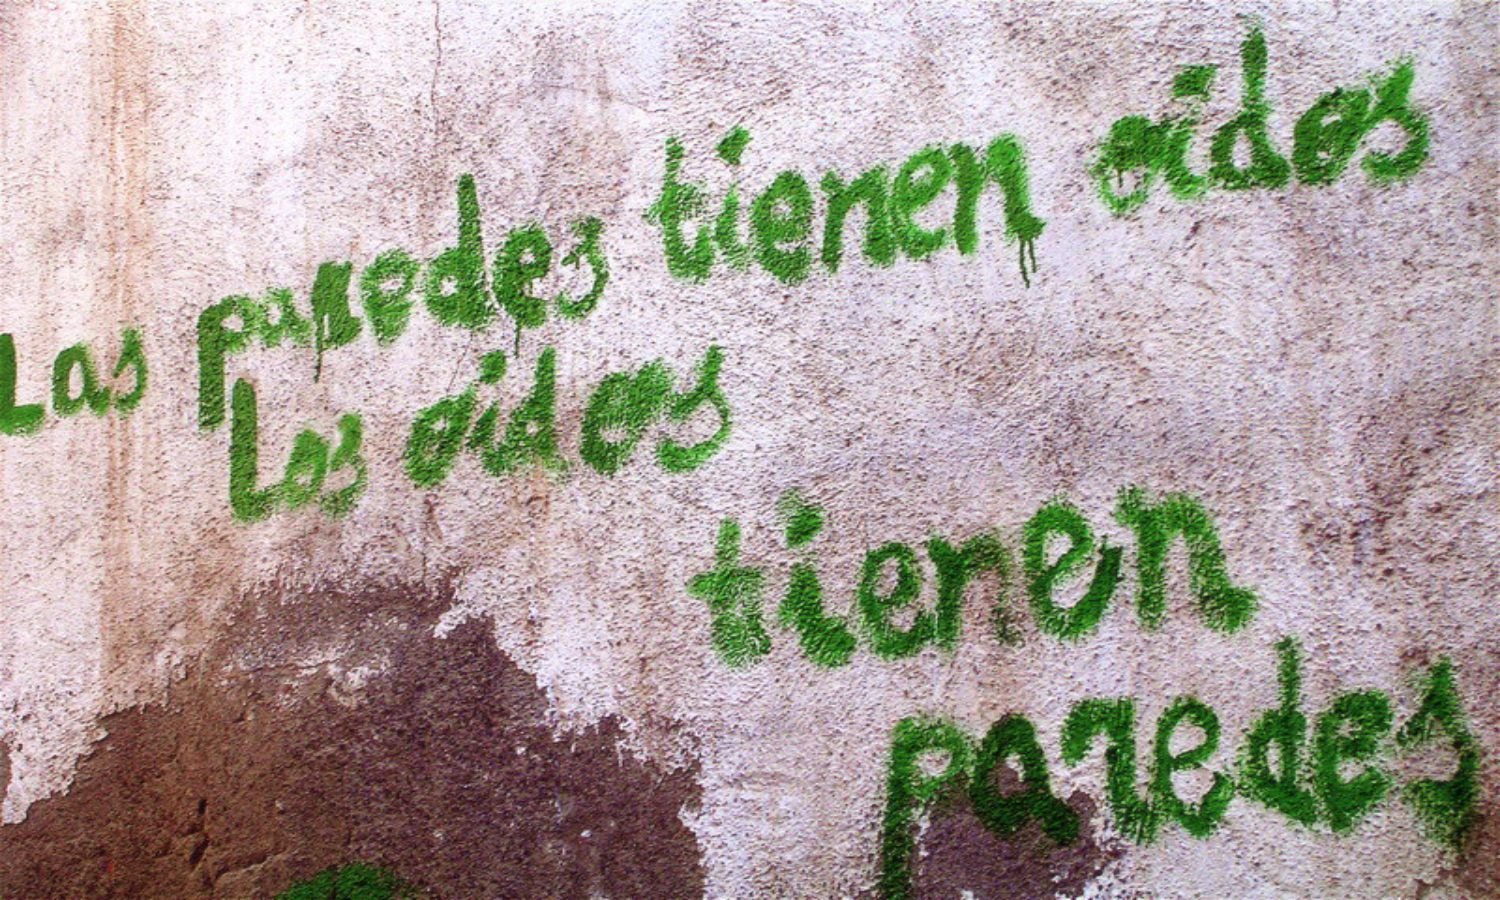 Las paredes tienen oidos
Los oidos
tienen
paredes